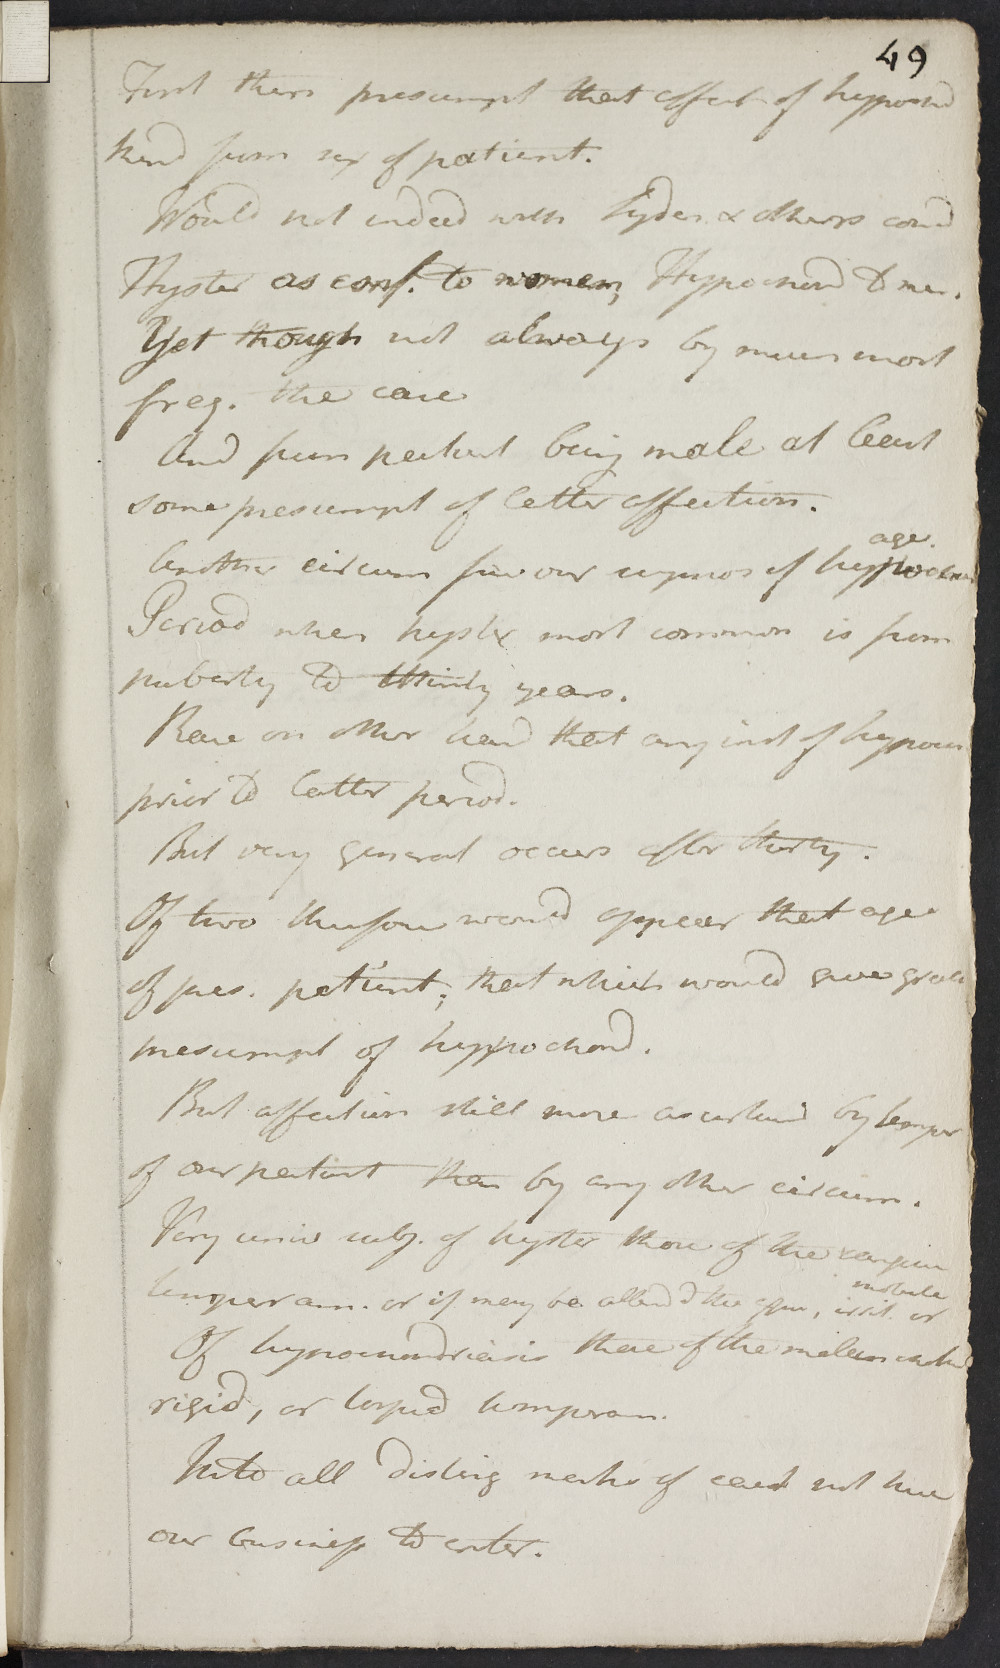 49
First then presumpt that affect of hypochond
kend from sex of patient.
Would not indeed with Syden & others cond
Hyster as conf. to women, Hypochond to men.
Yet though not always by much most
freq. the case
And from patient being male at least
some presumpt of latter affection.
age.
Another circum favour of hypochon
Period when hyster most common is from
puberty to thirty years.
Rare on other hand that any inst of hypocon
prior to latter period.
But very general occurs after thirty.
Of two therefore would appear that age
of pres. patient, that which would give great
presumpt of hypochond.
But affection still more ascertained by temper
of our patient than by any other circum.
Very univ subj. of hyster those of the sanguin
mobile
temperam. or if may be allow'd the expr, irrit. or
Of hypochondriasis those of the melancholic
rigid, or torpid temperam.
Into all disting marks of each not here
our business to enter.